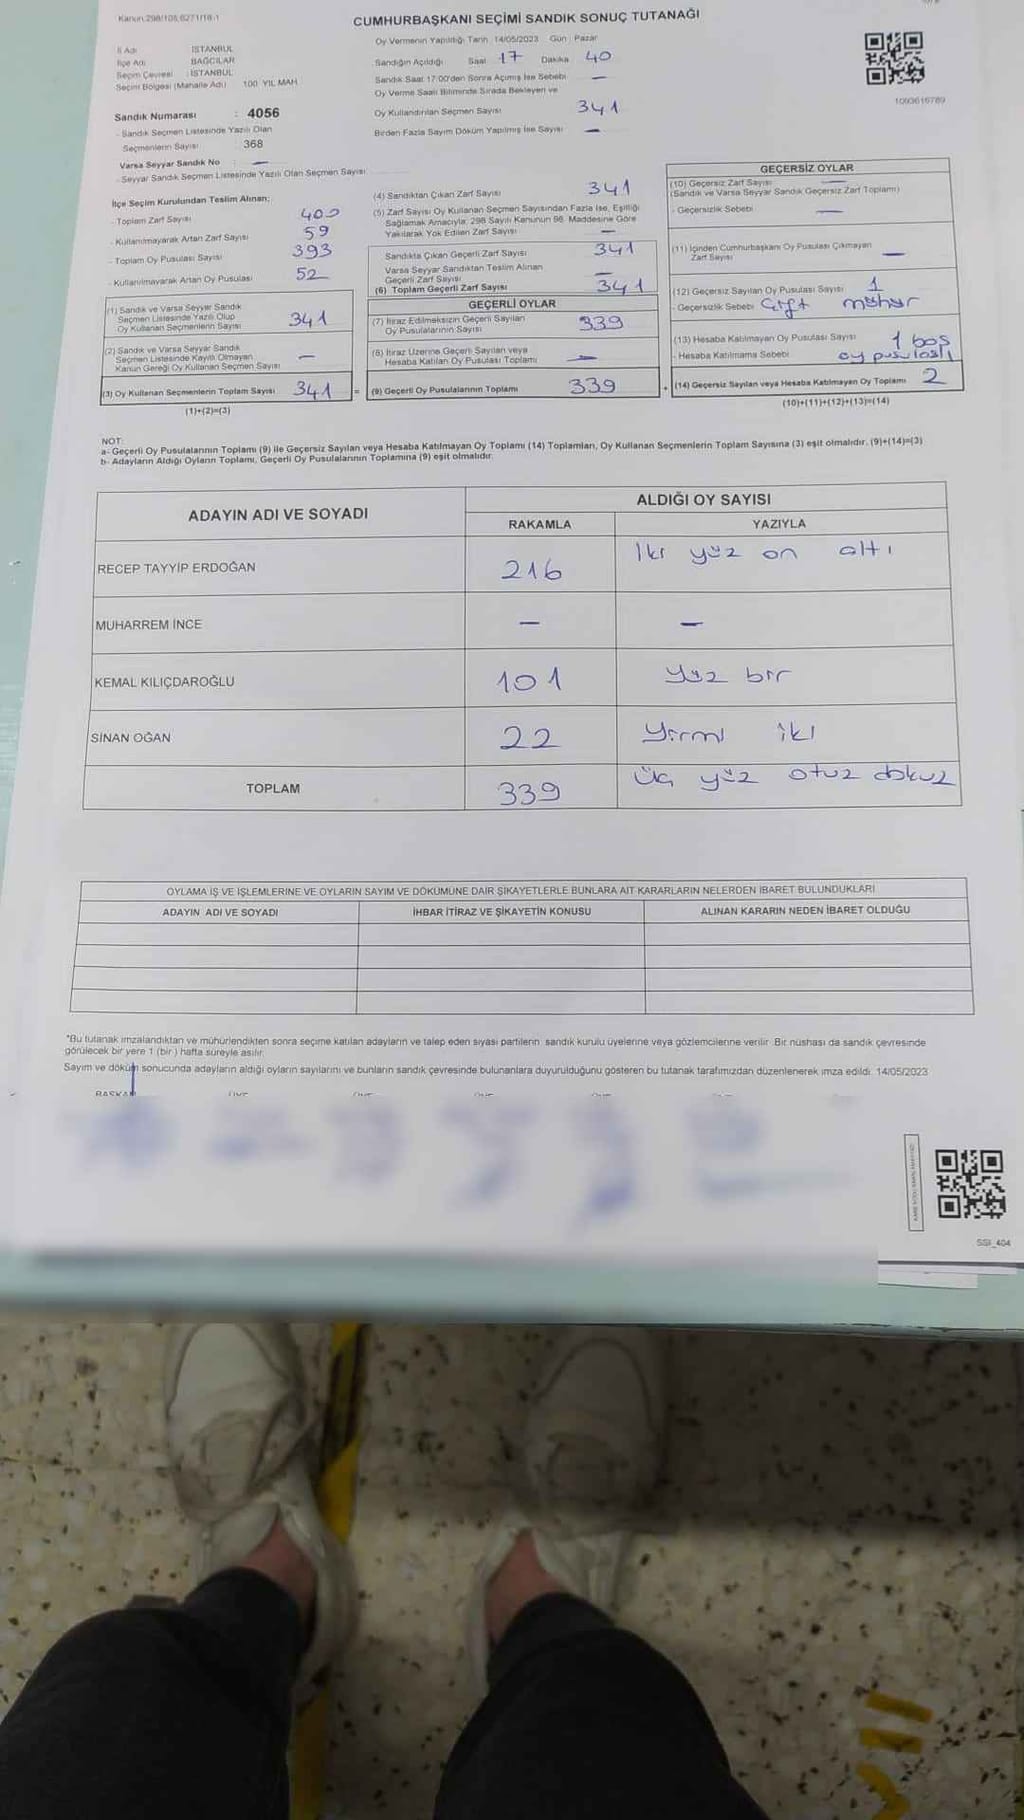 Kanun 298/105,6271/18-1
CUMHURBAŞKANI SEÇİMİ SANDIK SONUÇ TUTANAĞI
İl Adı İSTANBUL
İlçe Adı BAĞCILAR
Seçim Çevresi : İSTANBUL
Seçim Bölgesi (Mahalle Adı) 100 YIL MAH
Oy Vermenin Yapıldığı Tarih 14/05/2023 Gün : Pazar
Sandığın Açıldığı Saat 17 Dakika 40
Sandık Saat 17:00'den Sonra Açılmış İse Sebebi —
Oy Verme Saati Bitiminde Sırada Bekleyen ve
Oy Kullandırılan Seçmen Sayısı 341
Birden Fazla Sayım Döküm Yapılmış İse Sayısı —
1093616789
Sandık Numarası : 4056
- Sandık Seçmen Listesinde Yazılı Olan
Seçmenlerin Sayısı 368
Varsa Seyyar Sandık No : —
- Seyyar Sandık Seçmen Listesinde Yazılı Olan Seçmen Sayısı
İlçe Seçim Kurulundan Teslim Alınan;
- Toplam Zarf Sayısı 400
- Kullanılmayarak Artan Zarf Sayısı 59
- Toplam Oy Pusulası Sayısı 393
- Kullanılmayarak Artan Oy Pusulası 52
(1) Sandık ve Varsa Seyyar Sandık
Seçmen Listesinde Yazılı Olup
Oy Kullanan Seçmenlerin Sayısı 341
(2) Sandık ve Varsa Seyyar Sandık
Seçmen Listesinde Kayıtlı Olmayan
Kanun Gereği Oy Kullanan Seçmen Sayısı —
(3) Oy Kullanan Seçmenlerin Toplam Sayısı 341 =
(1)+(2)=(3)
(4) Sandıktan Çıkan Zarf Sayısı 341
(5) Zarf Sayısı Oy Kullanan Seçmen Sayısından Fazla İse, Eşitliği
Sağlamak Amacıyla; 298 Sayılı Kanunun 98. Maddesine Göre
Yakılarak Yok Edilen Zarf Sayısı —
Sandıkta Çıkan Geçerli Zarf Sayısı 341
Varsa Seyyar Sandıktan Teslim Alınan
Geçerli Zarf Sayısı —
(6) Toplam Geçerli Zarf Sayısı 341
GEÇERLİ OYLAR
(7) İtiraz Edilmeksizin Geçerli Sayılan
Oy Pusulalarının Sayısı 339
(8) İtiraz Üzerine Geçerli Sayılan veya
Hesaba Katılan Oy Pusulası Toplamı —
(9) Geçerli Oy Pusulalarının Toplamı 339 +
GEÇERSİZ OYLAR
(10) Geçersiz Zarf Sayısı —
(Sandık ve Varsa Seyyar Sandık Geçersiz Zarf Toplamı)
- Geçersizlik Sebebi —
(11) İçinden Cumhurbaşkanı Oy Pusulası Çıkmayan
Zarf Sayısı —
(12) Geçersiz Sayılan Oy Pusulası Sayısı 1
- Geçersizlik Sebebi Çift mühür
(13) Hesaba Katılmayan Oy Pusulası Sayısı 1 boş
- Hesaba Katılmama Sebebi oy pusulası
(14) Geçersiz Sayılan veya Hesaba Katılmayan Oy Toplamı 2
(10)+(11)+(12)+(13)=(14)
NOT:
a- Geçerli Oy Pusulalarının Toplamı (9) ile Geçersiz Sayılan veya Hesaba Katılmayan Oy Toplamı (14) Toplamları, Oy Kullanan Seçmenlerin Toplam Sayısına (3) eşit olmalıdır. (9)+(14)=(3)
b- Adayların Aldığı Oyların Toplamı, Geçerli Oy Pusulalarının Toplamına (9) eşit olmalıdır.
ADAYIN ADI VE SOYADI
ALDIĞI OY SAYISI
RAKAMLA YAZIYLA
RECEP TAYYİP ERDOĞAN 216 İki yüz on altı
MUHARREM İNCE — —
KEMAL KILIÇDAROĞLU 101 yüz bir
SİNAN OĞAN 22 yirmi iki
TOPLAM 339 üç yüz otuz dokuz
OYLAMA İŞ VE İŞLEMLERİNE VE OYLARIN SAYIM VE DÖKÜMÜNE DAİR ŞİKAYETLERLE BUNLARA AİT KARARLARIN NELERDEN İBARET BULUNDUKLARI
ADAYIN ADI VE SOYADI İHBAR İTİRAZ VE ŞİKAYETİN KONUSU ALINAN KARARIN NEDEN İBARET OLDUĞU
*Bu tutanak imzalandıktan ve mühürlendikten sonra seçime katılan adayların ve talep eden siyasi partilerin sandık kurulu üyelerine veya gözlemcilerine verilir. Bir nüshası da sandık çevresinde
görülecek bir yere 1 (bir) hafta süreyle asılır.
Sayım ve döküm sonucunda adayların aldığı oyların sayılarını ve bunların sandık çevresinde bulunanlara duyurulduğunu gösteren bu tutanak tarafımızdan düzenlenerek imza edildi. 14/05/2023
BAŞKAN
SSI_404